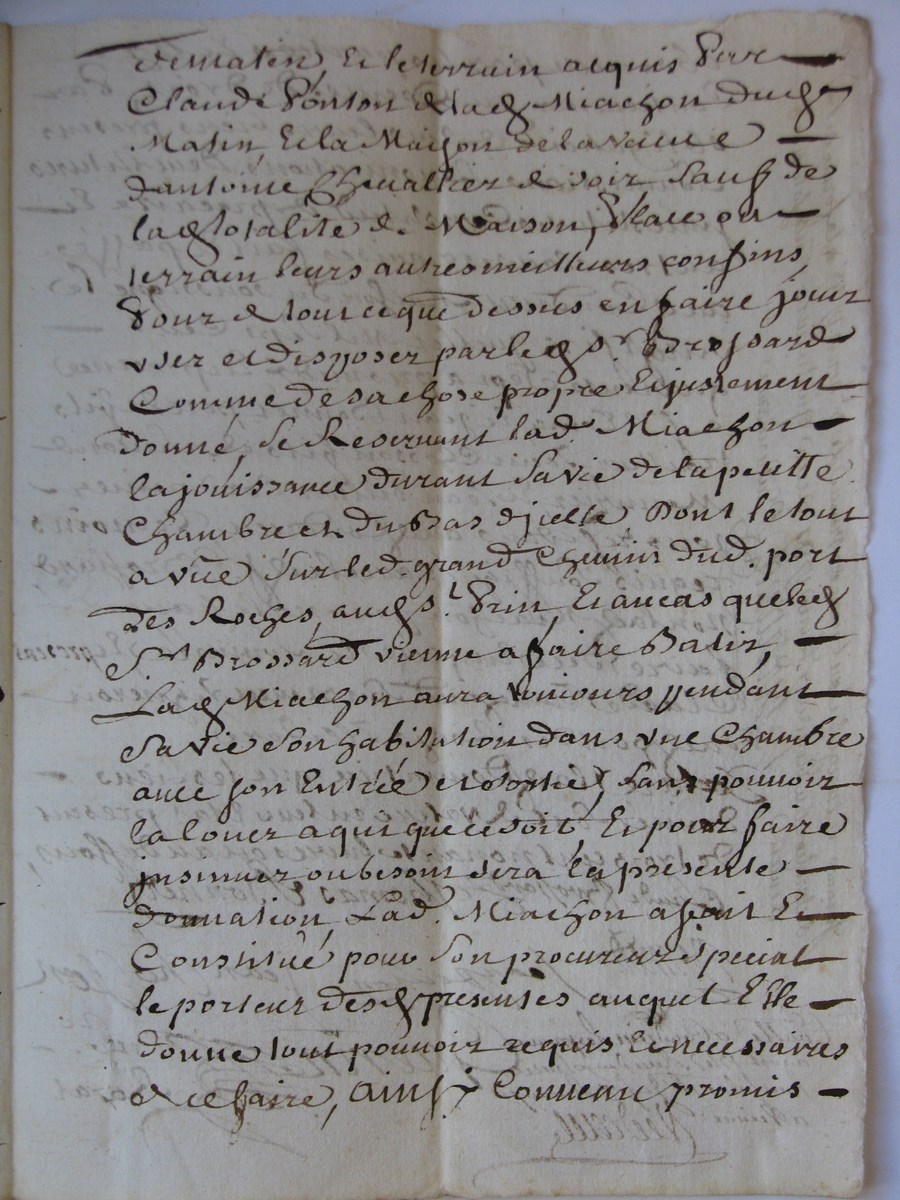 de matin, Et le terrain acquis Par
Claude Ponson de lad. Miachon dud.
Matin Et la Maison de la vauve
dantoine Chevallier de soir Sauf de
lad. totalité de Maison, Place ou
terrain leurs autres meilleurs confins,
Pour de tout ce que dessus en faire jouir
vser et disposer par led. Sr. Brossard
Comme de sa chose propre Et justement
donné, Se Reservant lad. Miachon
la jouissance durant Sa vie de la petitte
Chambre et du Bas dicelle, Dont le tout
a vüe Sur led. grand Chemin dud. port
des Roches, aud. St. Prin, Et au cas que led.
Sr. Brossard vienne a faire Batir,
Lad. Miachon aura toujours pendant
Sa vie Son habitution dans vne Chambre
avec son Entrée et sortie, sans pouvoir
la louer a qui que ce soit, Et pour faire
jnsinuer ou besoin sera la presente
donnation, Lad. Miachon a fait Et
Constitué pour Son procureur Special
le porteur desd. presentes auquel Elle
donne tout pouvoir requis Et necessaires
de ce faire, ainsy Convenu promis